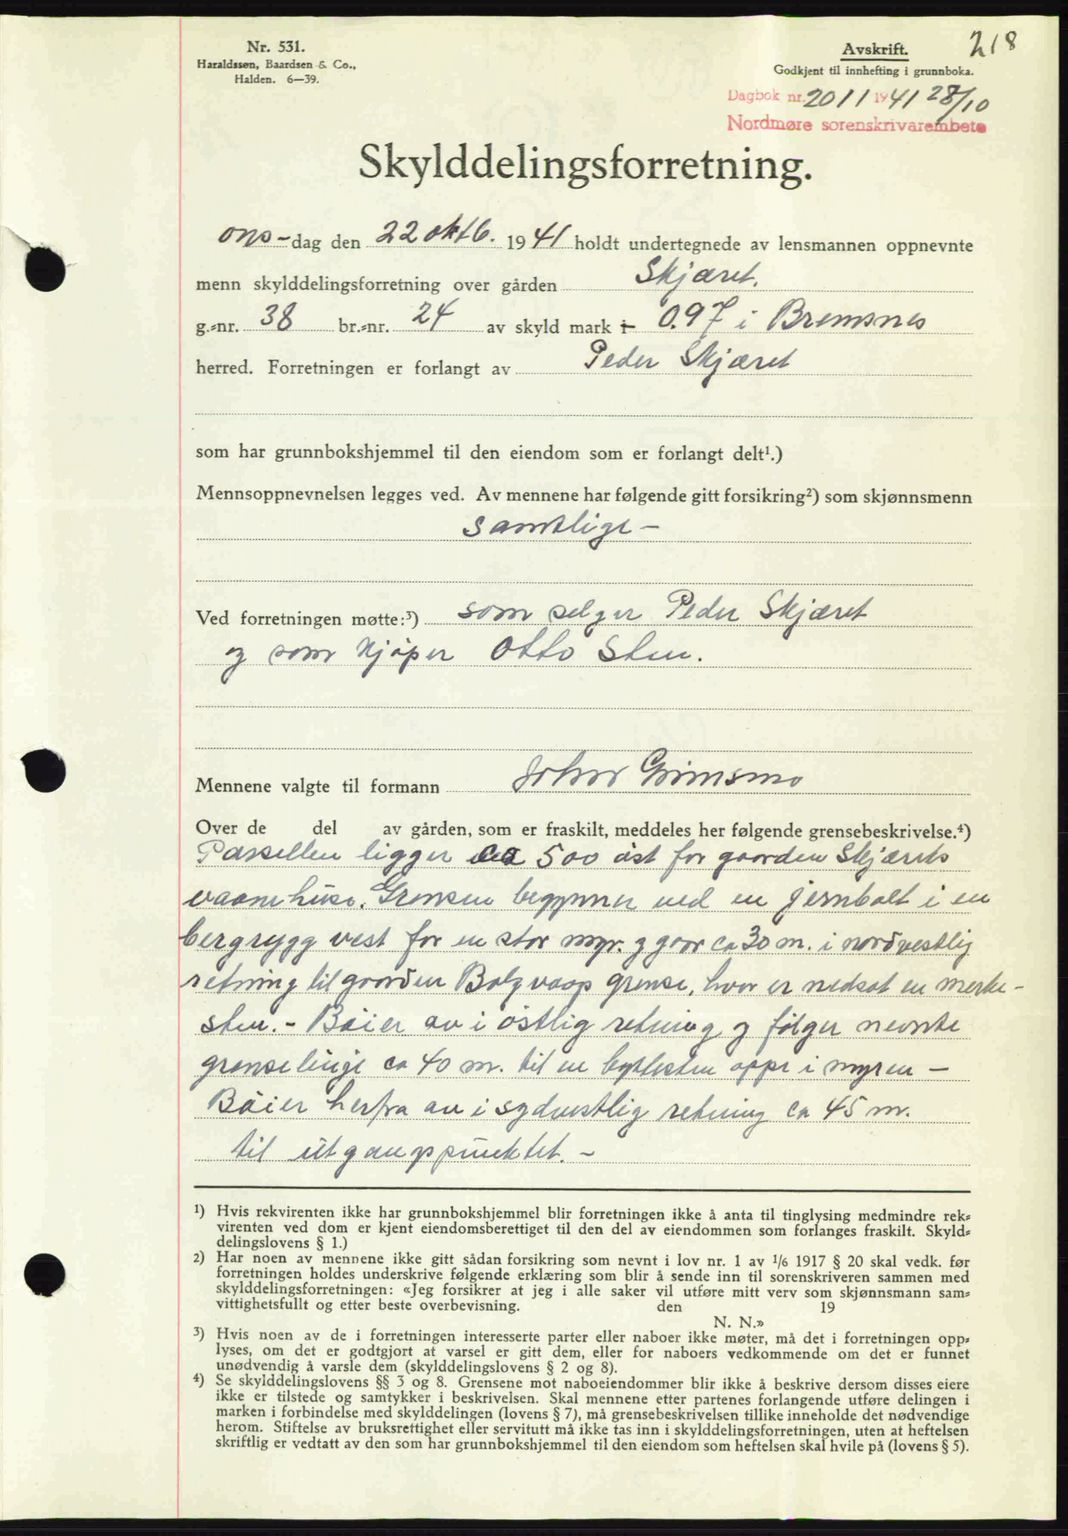 218
Nr. 531.
Haraldssøn, Baardsen & Co.,
Halden. 6—39.
Avskrift.
Godkjent til innhefting i grunnboka.
Dagbok nr. 2011 1941 28/10
Nordmøre sorenskrivarembete
Skylddelingsforretning.
ons-dag den 22 oktb. 1941 holdt undertegnede av lensmannen oppnevnte
menn skylddelingsforretning over gården Skjæret.
g.-nr. 38 br.-nr. 24 av skyld mark 0.97 i Bremsnes
herred. Forretningen er forlangt av Peder Skjæret
som har grunnbokshjemmel til den eiendom som er forlangt delt¹.)
Mennsoppnevnelsen legges ved. Av mennene har følgende gitt forsikring²) som skjønnsmenn
samtlige –
Ved forretningen møtte:³) som selger Peder Skjæret
og som kjøper Otto Sten.
Mennene valgte til formann Johan Grimsmo
Over de del av gården, som er fraskilt, meddeles her følgende grensebeskrivelse.⁴)
Parsellen ligger ca 500 øst for gaarden Skjærets
vaanehuse. Grensen begynner ved en jernbolt i en
bergrygg vest for en stor myr. og gaar ca 30 m. i nordvestlig
retning til gaarden Bolgvaags grense, hvor er nedsat en merke-
sten. – Bøier av i østlig retning og følger nevnte
grenselinje ca 40 m. til en byttesten oppe i myren –
Bøier herfra av i sydvestlig retning ca 45 m.
til utgangspunktet. –
¹) Hvis rekvirenten ikke har grunnbokshjemmel blir forretningen ikke å anta til tinglysing medmindre rek-
virenten ved dom er kjent eiendomsberettiget til den del av eiendommen som forlanges fraskilt. Skyld-
delingslovens § 1.)
²) Har noen av mennene ikke gitt sådan forsikring som nevnt i lov nr. 1 av 1/6 1917 § 20 skal vedk. før
forretningen holdes underskrive følgende erklæring som blir å sende inn til sorenskriveren sammen med
skylddelingsforretningen: «Jeg forsikrer at jeg i alle saker vil utføre mitt verv som skjønnsmann sam-
vittighetsfullt og etter beste overbevisning. den 19
N. N.»
³) Hvis noen av de i forretningen interesserte parter eller naboer ikke møter, må det i forretningen opp-
lyses, om det er godtgjort at varsel er gitt dem, eller for naboers vedkommende om det er funnet
unødvendig å varsle dem (skylddelingslovens § 2 og 8).
⁴) Se skylddelingslovens §§ 3 og 8. Grensene mot naboeiendommer blir ikke å beskrive dersom disses eiere
ikke er tilstede og samtykker i beskrivelsen. Skal mennene etter partenes forlangende utføre delingen i
marken i forbindelse med skylddelingen (lovens § 7), må grensebeskrivelsen tillike inneholde det nødvendige
herom. Stiftelse av bruksrettighet eller servitutt må ikke tas inn i skylddelingsforretningen, uten at heftelsen
skriftlig er vedtatt av den som har grunnbokshjemmel til den eiendom som heftelsen skal hvile på (lovens § 5).